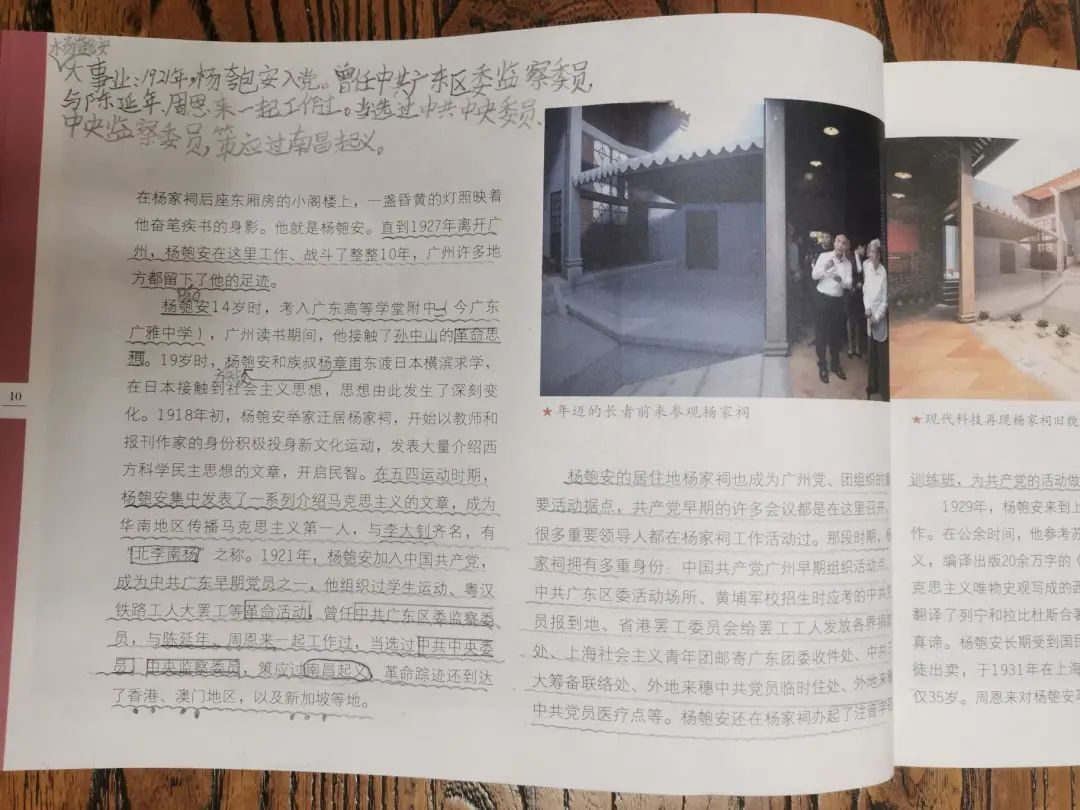 杨匏安
大事业:1921年,杨匏安入党。曾任中共广东区委监察委员,
与陈延年、周恩来一起工作过。当选过中共中央委员、
中央监察委员,策应过南昌起义。
在杨家祠后座东厢房的小阁楼上,一盏昏黄的灯照映着
他奋笔疾书的身影。他就是杨匏安。直到1927年离开广
州,杨匏安在这里工作、战斗了整整10年,广州许多地
方都留下了他的足迹。
杨匏安14岁时,考入广东高等学堂附中(今广东
广雅中学),广州读书期间,他接触了孙中山的革命思
想。19岁时,杨匏安和族叔杨章甫东渡日本横滨求学,
在日本接触到社会主义思想,思想由此发生了深刻变
化。1918年初,杨匏安举家迁居杨家祠,开始以教师和
报刊作家的身份积极投身新文化运动,发表大量介绍西
方科学民主思想的文章,开启民智。在五四运动时期,
杨匏安集中发表了一系列介绍马克思主义的文章,成为
华南地区传播马克思主义第一人,与李大钊齐名,有
“北李南杨”之称。1921年,杨匏安加入中国共产党,
成为中共广东早期党员之一,他组织过学生运动、粤汉
铁路工人大罢工等革命活动,曾任中共广东区委监察委
员,与陈延年、周恩来一起工作过,当选过中共中央委
员、中央监察委员,策应过南昌起义,革命踪迹还到达
了香港、澳门地区,以及新加坡等地。
10
★年迈的长者前来参观杨家祠
杨匏安的居住地杨家祠也成为广州党、团组织的重
要活动据点,共产党早期的许多会议都是在这里召开,
很多重要领导人都在杨家祠工作活动过。那段时期,杨
家祠拥有多重身份:中国共产党广州早期组织活动点、
中共广东区委活动场所、黄埔军校招生时应考的中共党
员报到地、省港罢工委员会给罢工工人发放各界捐款
处、上海社会主义青年团邮寄广东团委收件处、中共三
大筹备联络处、外地来穗中共党员临时住处、外地来穗
中共党员医疗点等。杨匏安还在杨家祠办起了注音字母
★现代科技再现杨家祠旧貌
训练班,为共产党的活动做
1929年,杨匏安来到上
作。在公余时间,他参考苏
义,编译出版20余万字的《
克思主义唯物史观写成的西
翻译了列宁和拉比杜斯合著
真谛。杨匏安长期受到国民
徒出卖,于1931年在上海
仅35岁。周恩来对杨匏安革